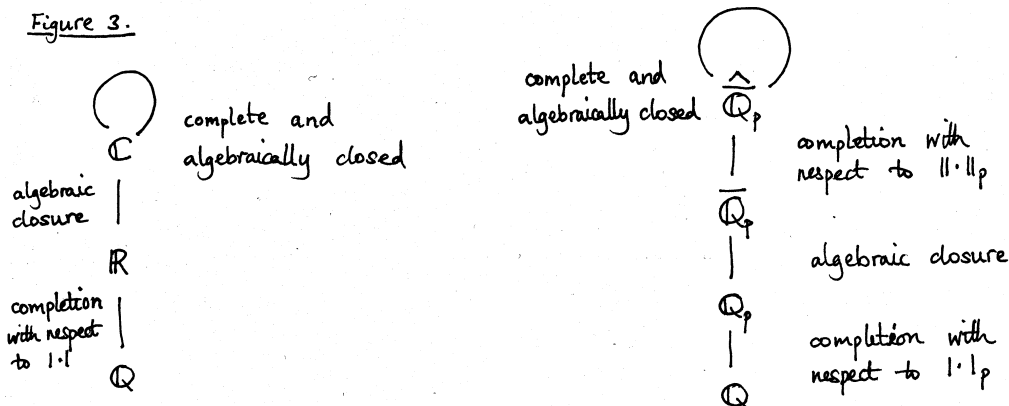 Figure 3.
ℂ
complete and
algebraically closed
algebraic
closure
ℝ
completion
with respect
to |·|
ℚ
complete and
algebraically closed
\hat{\overline{ℚ}}_p
completion with
respect to ||·||_p
\overline{ℚ}_p
algebraic closure
ℚ_p
completion with
respect to |·|_p
ℚ